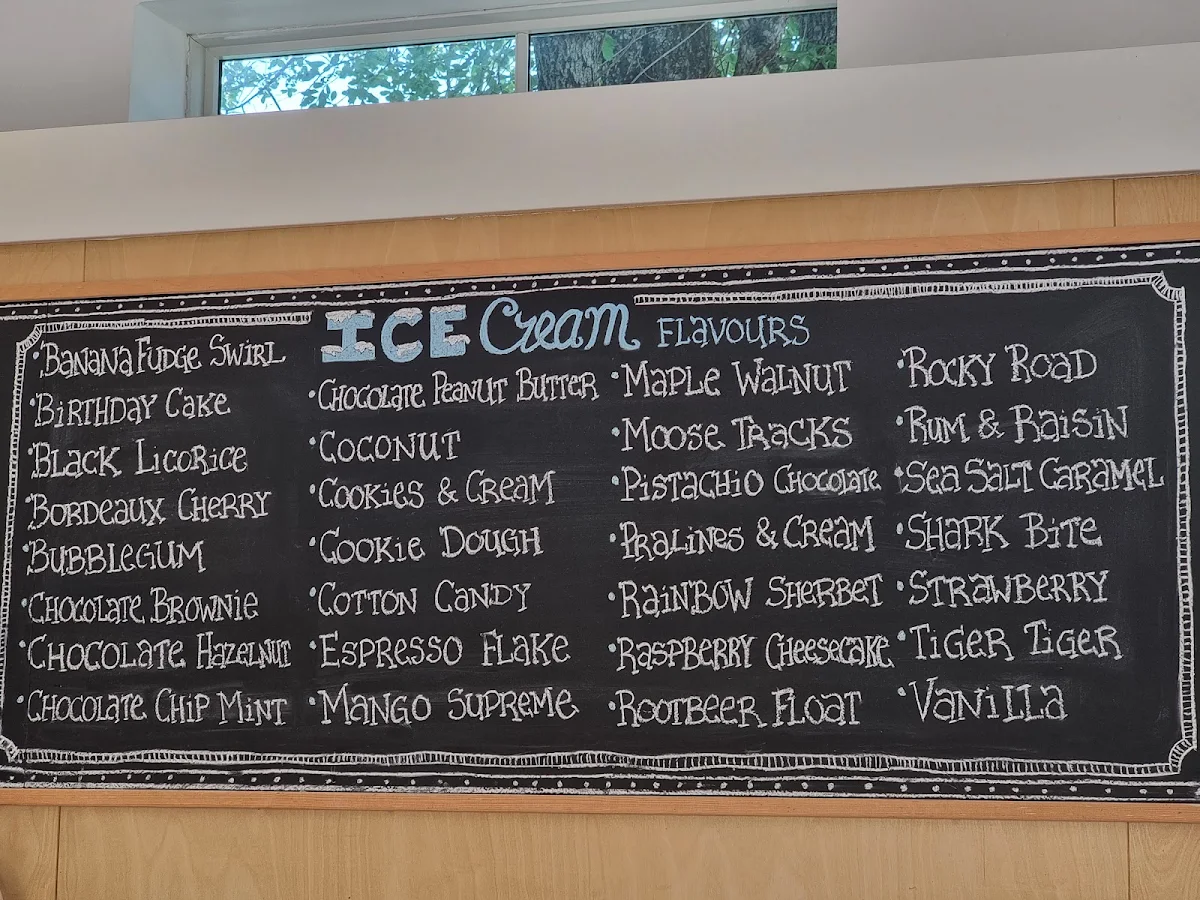 ICE Cream FLAVOURS
• BANANA FUDGE SWIRL
• BIRTHDAY CAKE
• BLACK LICORICE
• BORDEAUX CHERRY
• BUBBLEGUM
• CHOCOLATE BROWNIE
• CHOCOLATE HAZELNUT
• CHOCOLATE CHIP MINT
• CHOCOLATE PEANUT BUTTER
• COCONUT
• COOKIES & CREAM
• COOKIE DOUGH
• COTTON CANDY
• ESPRESSO FLAKE
• MANGO SUPREME
• MAPLE WALNUT
• MOOSE TRACKS
• PISTACHIO CHOCOLATE
• PRALINES & CREAM
• RAINBOW SHERBET
• RASPBERRY CHEESECAKE
• ROOTBEER FLOAT
• ROCKY ROAD
• RUM & RAISIN
• SEA SALT CARAMEL
• SHARK BITE
• STRAWBERRY
• TIGER TIGER
• VANILLA